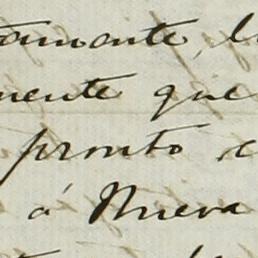 amente, l
mente que
pronto c
á Nueva